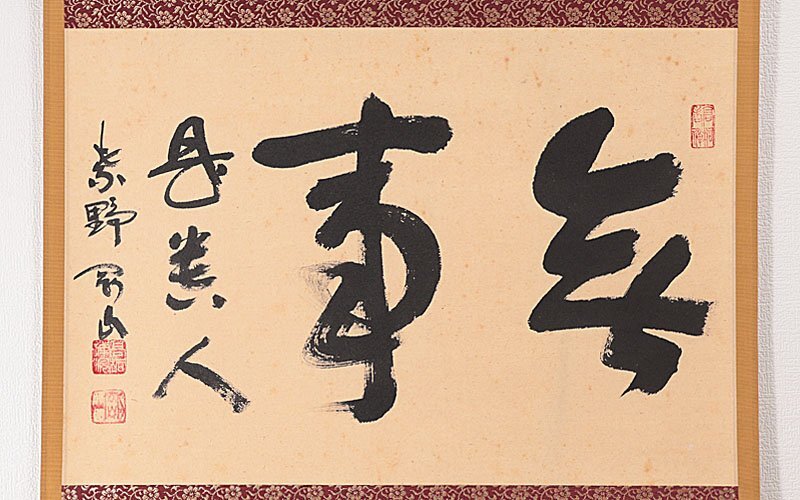 無
事
是貴人
紫野